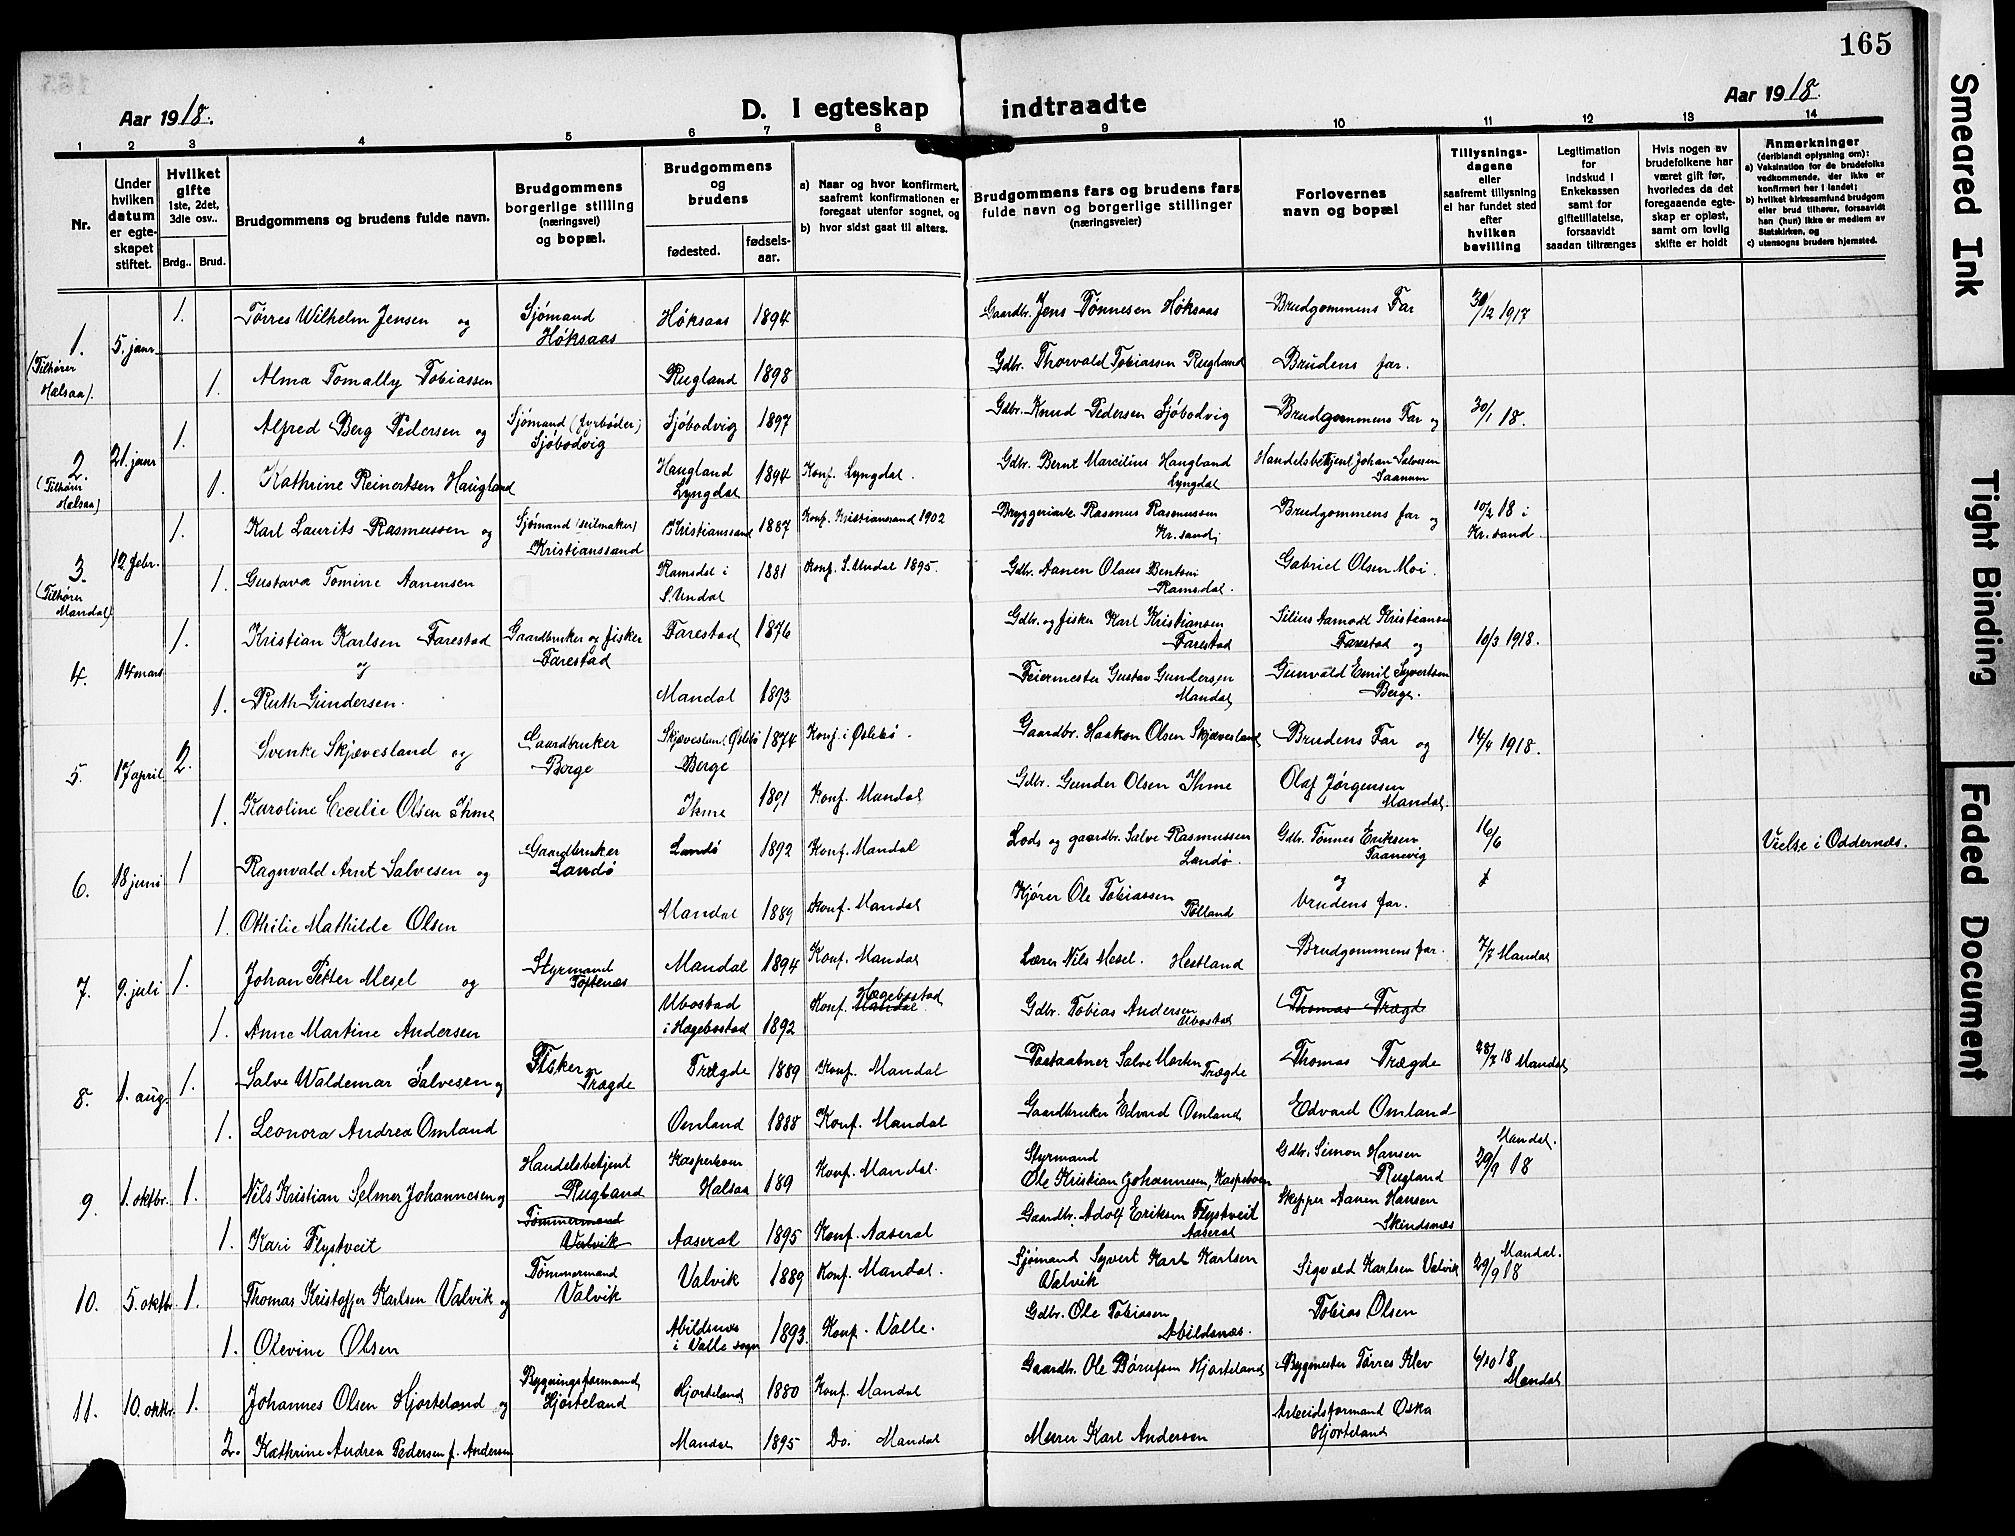 165
Aar 1918.
D. I egteskap indtraadte
Aar 1918.
1 2 3 4 5 6 7 8 9 10 11 12 13 14
Nr.
Under hvilken datum er egteskapet stiftet.
Hvilket gifte 1ste, 2det, 3die osv..
Brdg.. Brud.
Brudgommens og brudens fulde navn.
Brudgommens borgerlige stilling (næringsvei) og bopæl.
Brudgommens og brudens
fødested. fødselsaar.
a) Naar og hvor konfirmert, saafremt konfirmationen er foregaat utenfor sognet, og
b) hvor sidst gaat til alters.
Brudgommens fars og brudens fars fulde navn og borgerlige stillinger (næringsveier)
Forlovernes navn og bopæl
Tillysningsdagene eller saafremt tillysning ei har fundet sted efter hvilken bevilling
Legitimation for indskud i Enkekassen samt for giftetillatelse, forsaavidt saadan tiltrænges
Hvis nogen av brudefolkene har været gift før, hvorledes da det foregaaende egteskap er opløst, samt om lovlig skifte er holdt
Anmerkninger (deriblandt oplysning om): a) Vaksination for de brudefolks vedkommende, der ikke er konfirmert her i landet; b) hvilket kirkesamfund brudgom eller brud tilhører, forsaavidt han (hun) ikke er medlem av Statskirken, og c) utensogns bruders hjemsted.
1. (Tilhører Halsaa). 5. janr. 1. Tørres Wilhelm Jensen og Sjømand Høksaas Høksaas 1894 Gaardbr. Jens Tønnesen Høksaas Brudgommens Far 30/12 1917
1. Alma Tomally Tobiassen Rugland 1898 Gdbr. Thorvald Tobiassen Rugland Brudens far.
2. (Tilhører Halsaa) 21. janr 1. Alfred Berg Pedersen og Sjømand (fyrbøder) Sjøbodvig Sjøbodvig 1897 Gdbr. Knud Pedersen Sjøbodvig Brudgommens Far og 30/1 18.
1. Kathrine Reinertsen Haugland Haugland Lyngdal 1894 Konf. Lyngdal. Gdbr. Bernt Marcilius Haugland Lyngdal Handelsbetjent Johan Salvesen Saanum
3. (Tilhører Mandal) 12. febr. 1. Karl Laurits Rasmussen og Sjømand (seilmaker) Kristianssand Kristianssand 1887 Konf. Kristianssand 1902 Bryggeriarb. Rasmus Rasmussen Kr. sand; Brudgommens far og 10/2 18 i Kr. sand.
1. Gustava Tomine Aanensen Ramsdal i S. Undal 1881 Konf. S. Undal 1895. Gdbr. Aanen Olaus Bentsen Ramsdal. Gabriel Olsen Moi.
4. 14 mars 1. Kristian Karlsen Farestad og Gaardbruker og fisker Farestad Farestad 1876 Gdbr. og fisker Karl Kristiansen Farestad Silius Aamodt Kristiansen Farestad og 10/3 1918.
1. Ruth Gundersen. Mandal 1893 Feiermester Gustav Gundersen Mandal Gunvald Emil Syvertsen Berge.
5. 17 april 2. Svenke Skjævesland og Gaardbruker Berge Skjævesland, Øslebø Berge 1874 Konf. i Øslebø. Gaardbr. Haakon Olsen Skjævesland Brudens Far og 14/4 1918.
1. Karoline Cecilie Olsen Ihme Ihme 1891 Konf. Mandal Gdbr. Gunder Olsen Ihme Olaf Jørgensen Mandal.
6. 18 juni 1 Ragnvald Arnt Salvesen og Gaardbruker Landø Landø 1892 Konf. Mandal Lods og gaardbr. Salve Rasmussen Landø. Gdbr. Tønnes Eriksen Taanevig og 16/6 Vielse i Oddernæs.
1. Othilie Mathilde Olsen Mandal 1889 Konf. Mandal Kjører Ole Tobiassen Rølland brudens far.
7. 9. juli 1. Johan Petter Mesel og Styrmand Toftenæs Mandal 1894 Konf. Mandal Lærer Nils Mesel. Hestland Brudgommens far. 7/7 Mandal
1. Anne Martine Andersen Ubostad i Hægebostad 1892 Konf. Mandal Hægebostad Gdbr. Tobias Andersen Ubostad Thomas Trægde
8. 1. aug. 1. Salve Waldemar Salvesen og Fisker Trægde Trægde 1889 Konf. Mandal Postaabner Salve Morten Trægde Thomas Trægde 28/7 18 Mandal
1. Leonora Andrea Omland Omland 1888 Konf. Mandal Gaardbruker Edvard Omland Edvard Omland
9. 1. oktbr. 1. Nils Kristian Selmer Johannesen og Handelsbetjent Rugland Halsaa 189 Konf. Mandal. Styrmand Ole Kristian Johannesen, Gdbr. Simon Hansen Rugland Mandal. 29/9 18
1. Kari Flystveit Tømmermand Valvik Aaseral 1895 Konf. Aaseral Gaardbr. Adolf Eriksen Flystveit Aaseral Skipper Aanen Hansen Skindsnæs
10. 5. oktbr 1. Thomas Kristoffer Karlsen Valvik og Tømmermand Valvik Valvik 1889 Konf. Mandal. Sjømand Syvert Karl Karlsen Valvik Sigvald Karlsen Valvik Mandal. 29/9 18
1. Olevine Olsen Abildsnæs i Valle sogn 1893 Konf. Valle. Gdbr. Ole Tobiasen Abildsnæs. Tobias Olsen
11. 10. oktbr 1. Johannes Olsen Hjorteland og Bygningsformand, Hjorteland Hjorteland 1880 Konf. Mandal Gaardbr. Ole Børufsen Hjorteland Bygmester Tørres Klev 6/10 18 Mandal
2. Kathrine Andrea Pedersen f. Andersen Mandal 1895 Do. Mandal Murer Karl Andersen Arbeidsformand Oska Hjorteland
Smeared Ink
Tight Binding
Faded Document